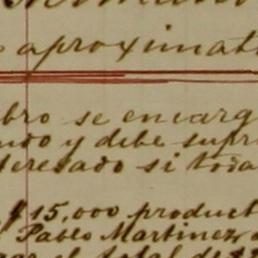 aproximat
bro se encarg
ndo y debe supr
teresado si toda
$15,000 product
Pablo Martinez
el total de